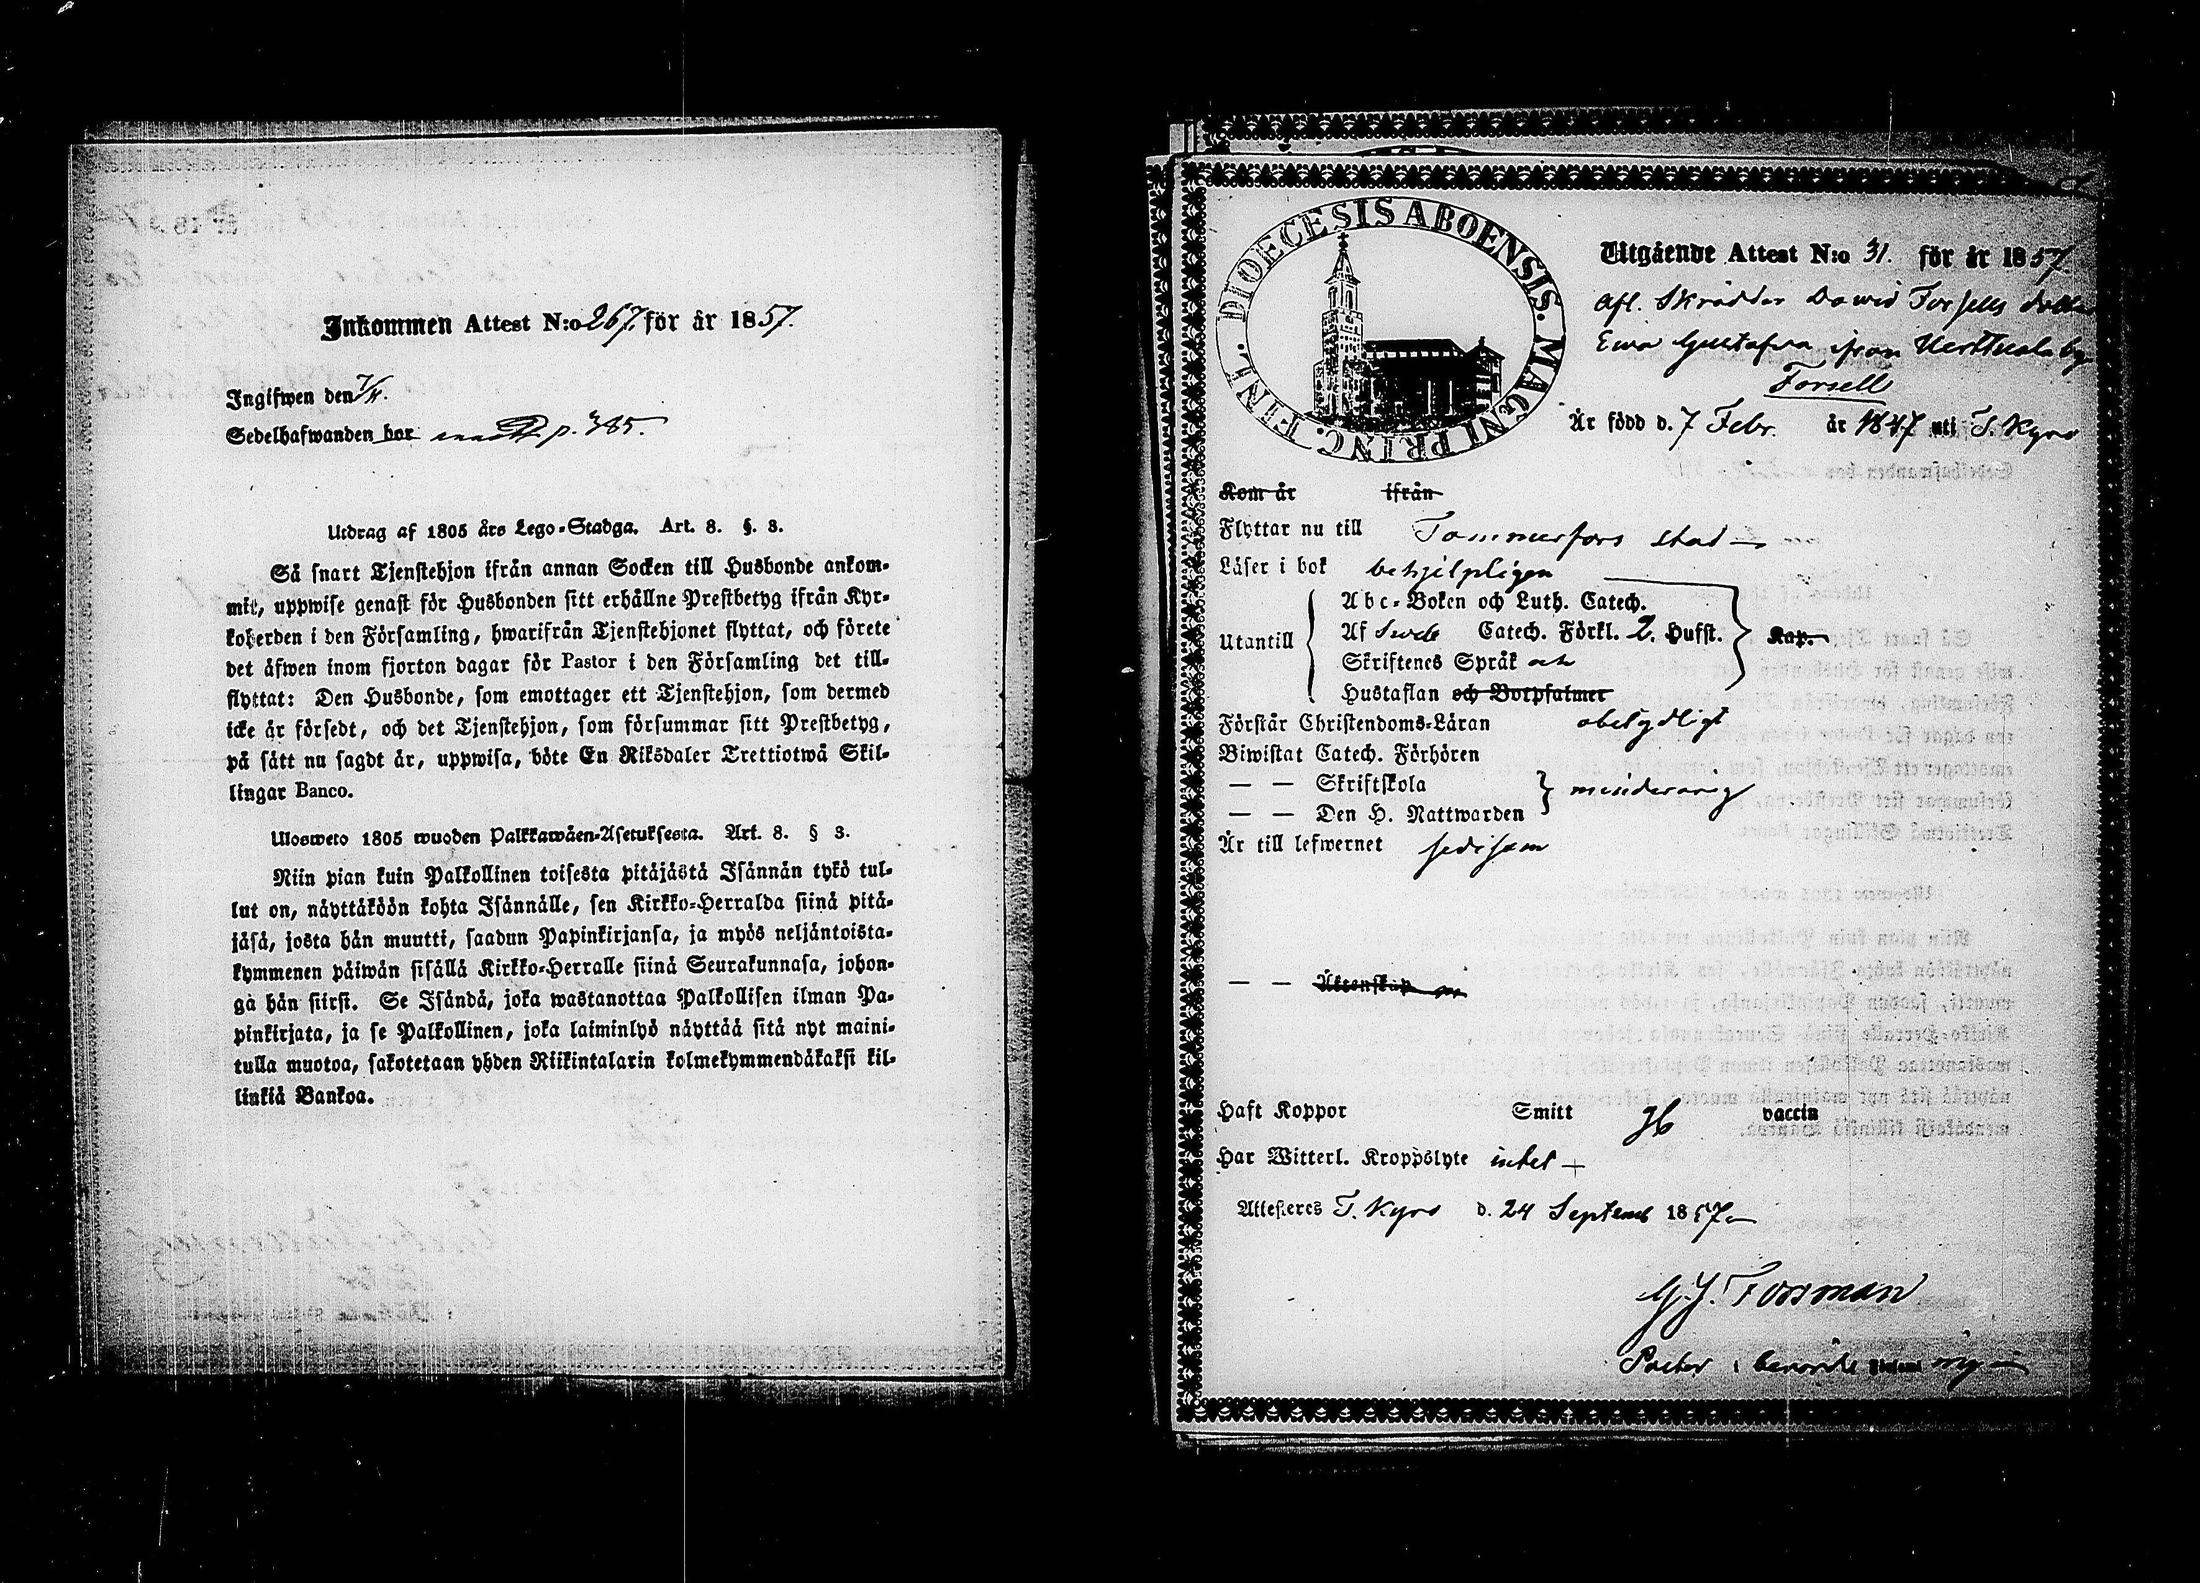 Inkommen Attest N:o 267. för år 1857.
Ingifwen den 7/11.
Sedelhafwanden bor p. 385.
Utdrag af 1805 års Lego-Stadga. Art. 8. §. 3.
Så snart Tjenstehjon ifrån annan Socken till Husbonde ankom-
mit, uppwise genast för Husbonden sitt erhållne Prestbetyg ifrån Kyr-
koherden i den Församling, hwarifrån Tjenstehjonet flyttat, och förete
det äfwen inom fjorton dagar för Pastor i den Församling det till-
flyttat: Den Husbonde, som emottager ett Tjenstehjon, som dermed
icke är försedt, och det Tjenstehjon, som försummar sitt Prestbetyg,
på sätt nu sagdt är, uppwisa, böte En Riksdaler Trettiotwå Skil-
lingar Banco.
Ulosweto 1805 wuoden Palkkawäen-Asetuksesta. Art. 8. § 3.
Niin pian kuin Palkollinen toisesta pitäjästä Isännän tykö tul-
lut on, näyttäköön kohta Isännälle, sen Kirkko-Herralda siinä pitä-
jäsä, josta hän muutti, saadun Papinkirjansa, ja myös neljäntoista-
kymmenen päiwän sisällä Kirkko-Herralle siinä Seurakunnasa, johon-
ga hän siirsi. Se Isändä, joka wastanottaa Palkollisen ilman Pa-
pinkirjata, ja se Palkollinen, joka laiminlyö näyttää sitä nyt maini-
tulla muotoa, sakotetaan yhden Riikintalarin kolmekymmendäkaksi kil-
linkiä Bankoa.
DIOECESIS ABOENSIS. MAGNI PRINC. FINL.
Utgående Attest N:o 31. för år 1857
Afl. Skräddar Dawid Forsells dotter
Ewa Gustafwa ifrån Herttuala by
Forsell
Är född d. 7 Febr. år 1847 uti T. Kyro
Kom år ifrån
Flyttar nu till Tammerfors stad
Läser i bok behjelpligen
Utantill
Abc-Boken och Luth. Catech.
Af Catech. Förkl. 2. Hufst. Kap.
Skriftenes Språk och
Hustaflan och Botpsalmer
Förstår Christendoms-Läran obetydligt
Biwistat Catech. Förhören
— — Skriftskola
— — Den H. Nattwarden minderårig
Är till lefwernet sedesam
— — Äktenskap
Haft Koppor Smitt vaccin
Har Witterl. Kroppslyte intet
Attesteres T. Kyro d. 24 Septemb 1857
G. J. Forsman
Pastor i